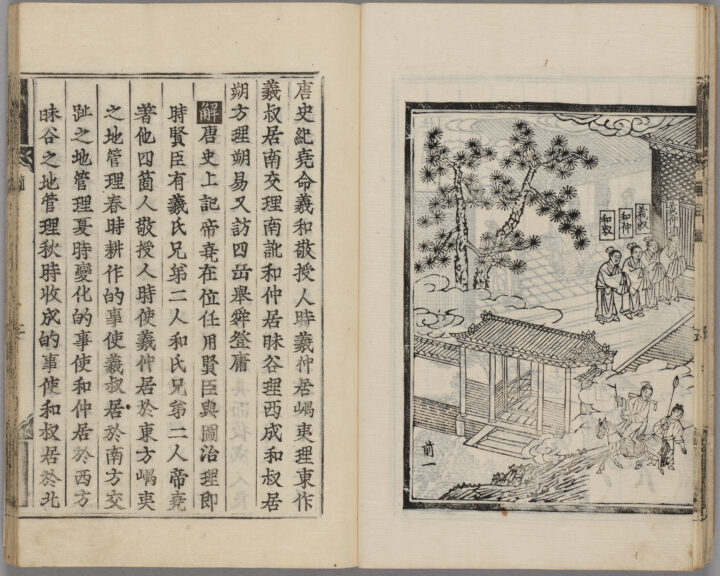 羲叔
和仲
和叔
前一
唐史紀堯命羲和敬授人時羲仲居嵎夷理東作
羲叔居南交理南訛和仲居昧谷理西成和叔居
朔方理朔易又訪四岳舉舜登庸
解唐史上記帝堯在位任用賢臣與圖治理即
時賢臣有羲氏兄弟二人和氏兄弟二人帝堯
著他四箇人敬授人時使羲仲居於東方嵎夷
之地管理春時耕作的事使羲叔居於南方交
趾之地管理夏時變化的事使和仲居於西方
昧谷之地管理秋時收成的事使和叔居於北